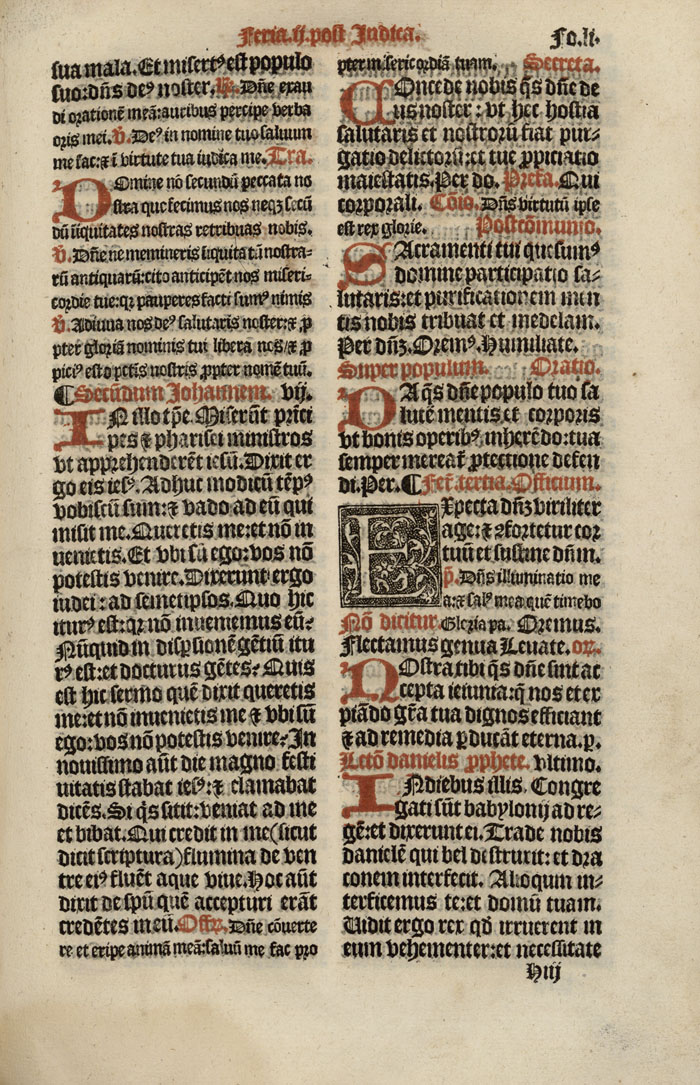 Feria .ij. post Iudica.
Fo.li.
sua mala. Et misertꝰ est populo
suo: dñs deꝰ noster. ℟. Dñe exau
di orationẽ meã: auribus percipe verba
oris mei. ℣. Deꝰ in nomine tuo saluum
me fac: ⁊ ĩ virtute tua iudica me. Tra.
DOmine nõ secundũ peccata no
stra que fecimus nos neqꝫ secũ
dũ iniquitates nostras retribuas nobis.
℣. Dñe ne memineris iniquita tũ nostra-
rũ antiquarũ: cito anticipẽt nos miseri-
cordie tue: qꝛ pauperes facti sumꝰ nimis
℣. Adiuua nos deꝰ salutaris noster: ⁊ ꝓ
pter gloriã nominis tui libera nos: ⁊ ꝓ
piciꝰ esto pctĩs nostris ꝓpter nomẽ tuũ.
¶ Secundum Johannem. vij.
IN illo tp̃e. Miserũt prĩci
pes ⁊ pharisei ministros
vt apprehenderẽt iesũ. Dixit er
go eis iesꝰ. Adhuc modicũ tẽpꝰ
vobiscũ sum: ⁊ vado ad eũ qui
misit me. Queretis me: et nõ in
uenietis. Et vbi sũ ego: vos nõ
potestis venire. Dixerunt ergo
iudei: ad semetipsos. Quo hic
iturꝰ est: qꝛ nõ inueniemus eũ?
Nũquid in disp̱sionẽ gẽtiũ itu
rꝰ est: et docturus gẽtes? Quis
est hic sermo quẽ dixit queretis
me: et nõ inuenietis me ⁊ vbi sũ
ego: vos nõ potestis venire? In
nouissimo aũt die magno festi
uitatis stabat iesꝰ: ⁊ clamabat
dicẽs. Si qs̃ sitit: veniat ad me
et bibat. Qui credit in me (sicut
dicit scriptura) flumina de ven
tre eiꝰ fluẽt aque viue. Hoc aũt
dixit de spũ quẽ accepturi erãt
credẽtes in eũ. Offr. Dñe cõuerte
re et eripe animã meã: saluũ me fac pro
pter misericordiã tuam. Secreta.
COncede nobis qs̃ dñe de
us noster: vt hec hostia
salutaris et nostrorũ fiat pur-
gatio delictorũ: et tue ꝓpiciatio
maiestatis. Per do. Prefa. Qui
corporali. Cõio. Dñs virtutũ ipse
est rex glorie. Postcõmunio.
SAcramenti tui quesumꝰ
domine participatio sa-
lutaris: et purificationem men
tis nobis tribuat et medelam.
Per dñꝫ. Oremꝰ. Humiliate.
Super populum. Oratio.
DA qs̃ dñe populo tuo sa
lutẽ mentis et corporis
vt bonis operibꝰ inherẽdo: tua
semper mereat̃ ꝓtectione defen
di. Per. ¶ Fer. tertia. Officium.
EXpecta dñꝫ viriliter
age: ⁊ ꝯfortetur cor
tuũ et sustine dñm.
p̃. Dñs illuminatio me
a: ⁊ salꝰ mea quẽ timebo
Nõ dicitur Gloria pa. Oremus.
Flectamus genua Leuate. or̃.
NOstra tibi qs̃ dñe sint ac
cepta ieiunia: q̃ nos et ex
piãdo gr̃a tua dignos efficiant
⁊ ad remedia ꝑducãt eterna. p.
Lctõ danielis ꝓphete. vltimo.
IN diebus illis. Congre
gati sũt babylonij ad re-
gẽ: et dixerunt ei. Trade nobis
danielẽ qui bel destruxit: et dra
conem interfecit. Alioqum in-
terficemus te: et domũ tuam.
Uidit ergo rex qd̃ irruerent in
eum vehementer: et necessitate
Hiij